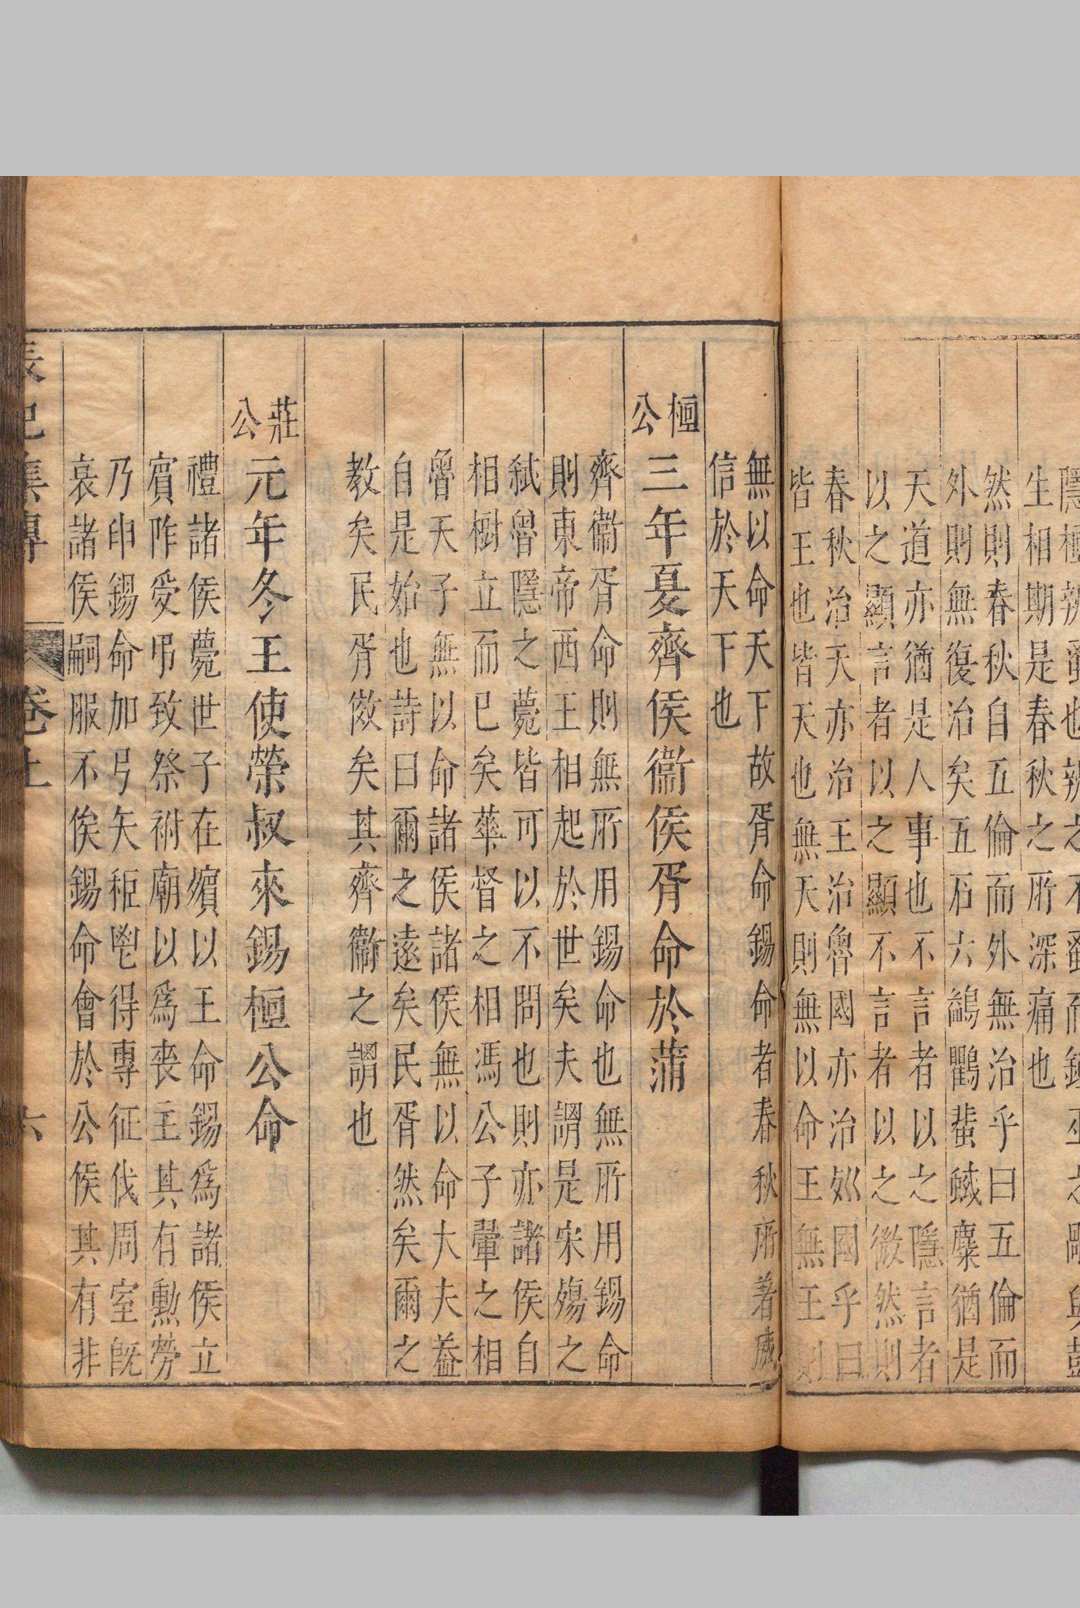 生相期是春秋之所深痛也
然則春秋自五倫而外無治乎曰五倫而
外則無復治矣五石六鷁鸜蜚蜮麋猶是
天道亦猶是人事也不言者以之隱言者
以之顯言者以之顯不言者以之微然則
春秋治天亦治王治魯國亦治列國乎曰
皆王也皆天也無天則無以命王無王則
無以命天下故胥命錫命者春秋所著威
信於天下也
桓公
三年夏齊侯衞侯胥命於蒲
齊衞胥命則無所用錫命也無所用錫命
則東帝西王相起於世矣夫謂是宋殤之
弑魯隱之薨皆可以不問也則亦諸侯自
相樹立而已矣華督之相馮公子翬之相
魯天子無以命諸侯諸侯無以命大夫葢
自是始也詩曰爾之遠矣民胥然矣爾之
教矣民胥傚矣其齊衞之謂也
莊公
元年冬王使榮叔來錫桓公命
禮諸侯薨世子在殯以王命錫爲諸侯立
賓阼受弔致祭祔廟以爲喪主其有勳勞
乃申錫命加弓矢秬鬯得專征伐周室旣
衰諸侯嗣服不俟錫命會於公侯其有非
表記集傳 卷上 六